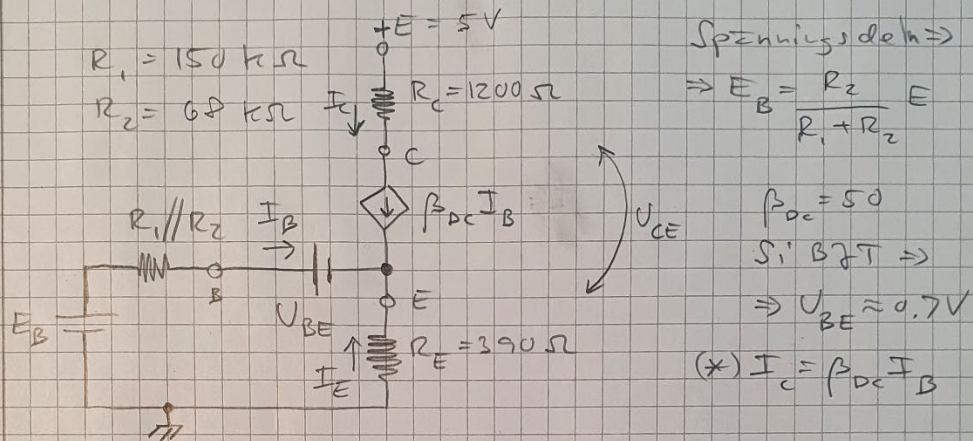 +E = 5 V
R₁ = 150 kΩ
R₂ = 68 kΩ
I_C
R_C = 1200 Ω
C
β_DC I_B
U_CE
R₁//R₂
I_B
B
U_BE
E_B
E
I_E
R_E = 390 Ω
Spänningsdeln ⇒
⇒ E_B = R₂ / (R₁ + R₂) E
β_DC = 50
Si BJT ⇒
⇒ U_BE ≈ 0.7 V
(*) I_C = β_DC I_B